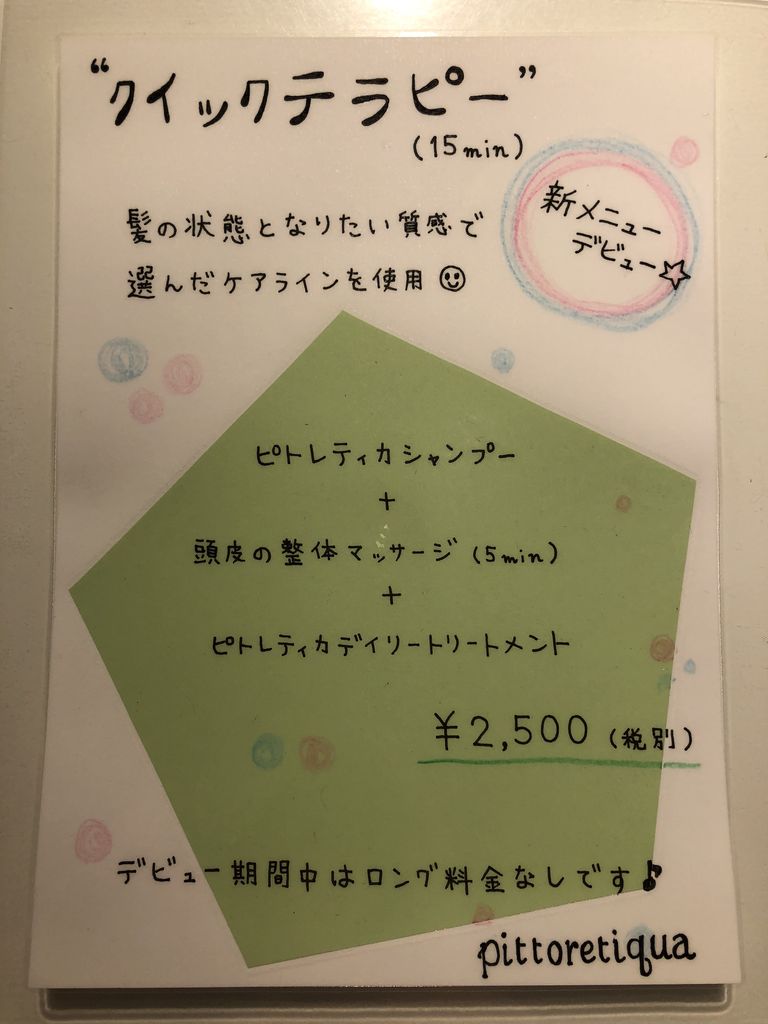 “クイックテラピー”
(15min)
新メニュー
デビュー☆
髪の状態となりたい質感で
選んだケアラインを使用☺
ピトレティカシャンプー
+
頭皮の整体マッサージ(5min)
+
ピトレティカデイリートリートメント
¥2,500(税別)
デビュー期間中はロング料金なしです♪
pittoretiqua